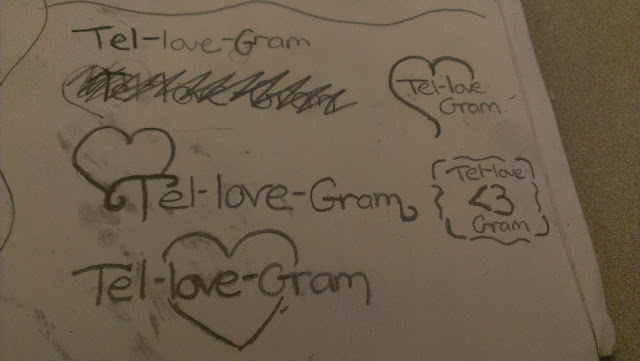 Tel-love-Gram
Tel-love
Gram
Tel-love-Gram
Tel-love
<3
Gram
Tel-love-Gram